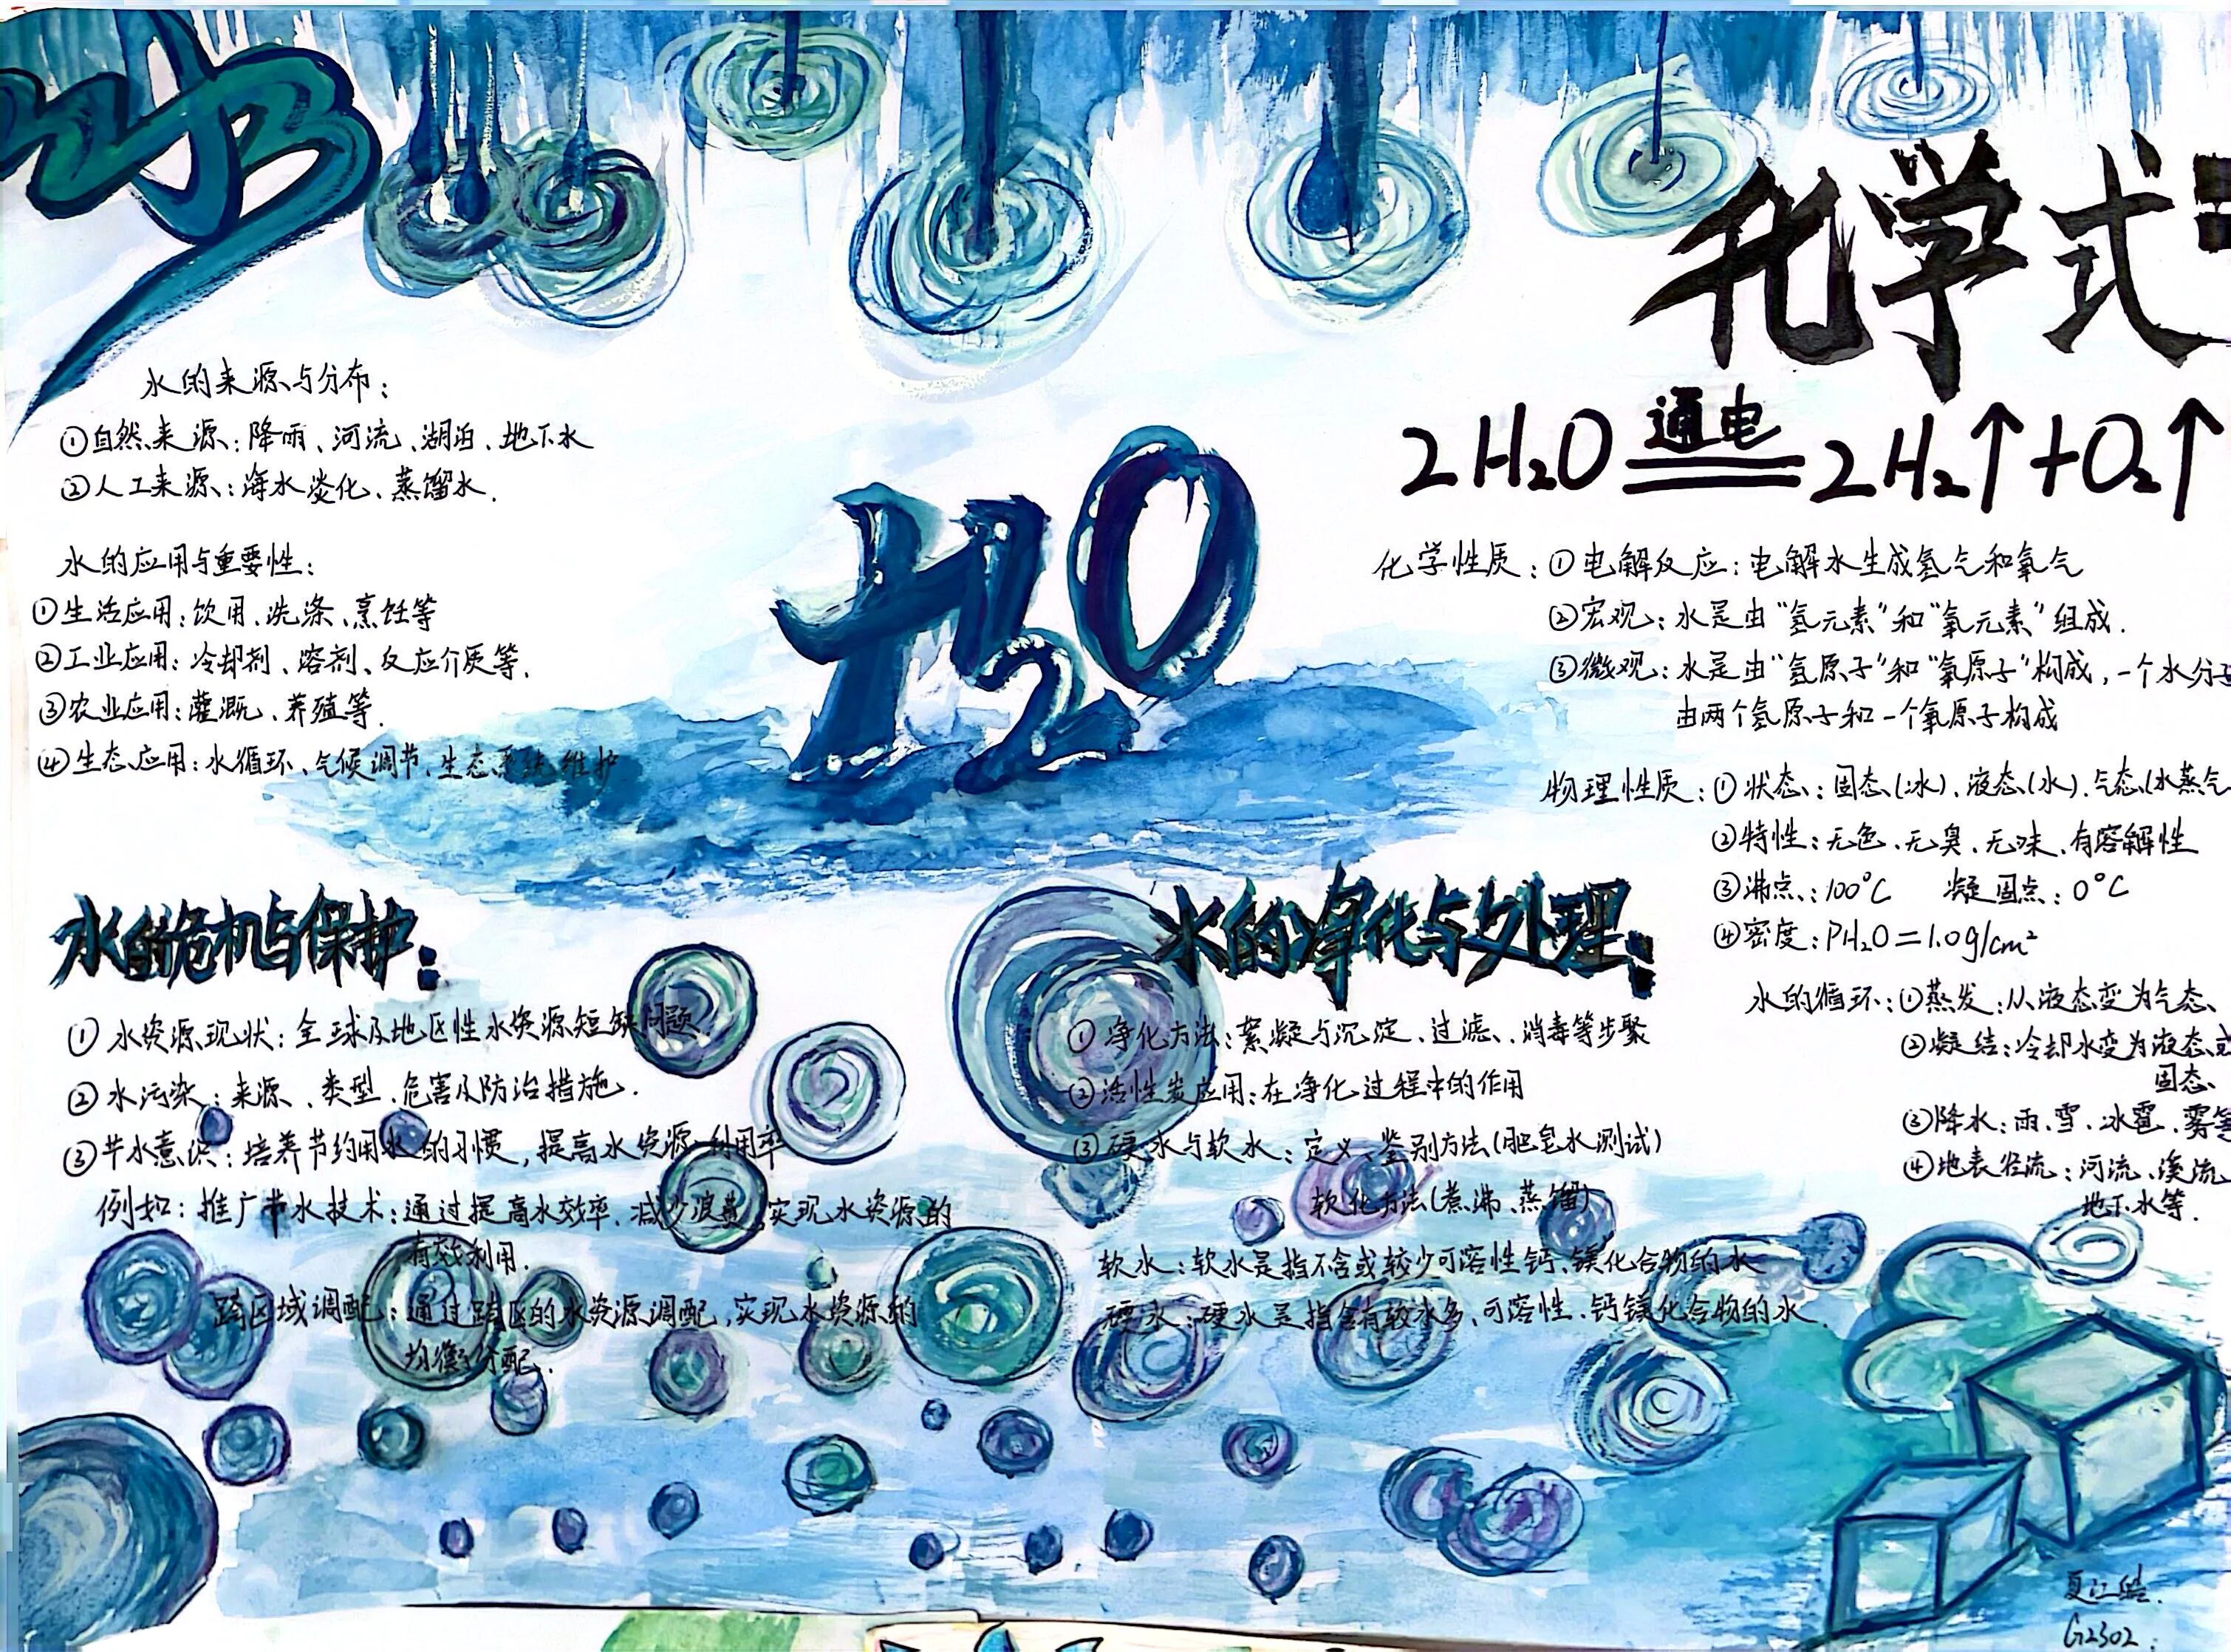 水的来源与分布：
①自然来源：降雨、河流、湖泊、地下水
②人工来源：海水淡化、蒸馏水.
水的应用与重要性：
①生活应用：饮用、洗涤、烹饪等
②工业应用：冷却剂、溶剂、反应介质等.
③农业应用：灌溉、养殖等.
④生态应用：水循环、气候调节、生态系统维护
H₂O
化学式：
2H₂O 通电 2H₂↑+O₂↑
化学性质：①电解反应：电解水生成氢气和氧气
②宏观：水是由“氢元素”和“氧元素”组成.
③微观：水是由“氢原子”和“氧原子”构成，一个水分子
由两个氢原子和一个氧原子构成
物理性质：①状态：固态(冰)、液态(水)、气态(水蒸气
②特性：无色、无臭、无味、有溶解性
③沸点：100°C 凝固点：0°C
④密度：PH₂O=1.0g/cm²
水的循环：①蒸发：从液态变为气态、
②凝结：冷却水变为液态或
固态、
③降水：雨、雪、冰雹、雾等
④地表径流：河流、溪流
地下水等.
水的危机与保护：
①水资源现状：全球及地区性水资源短缺问题
②水污染：来源、类型、危害及防治措施.
③节水意识：培养节约用水的习惯，提高水资源利用率
例如：推广节水技术：通过提高水效率、减少浪费，实现水资源的
有效利用.
跨区域调配：通过跨区的水资源调配，实现水资源的
均衡分配.
水的净化与处理：
①净化方法：絮凝与沉淀、过滤、消毒等步骤
②活性炭应用：在净化过程中的作用
③硬水与软水：定义、鉴别方法(肥皂水测试)
软化方法(煮沸、蒸馏)
软水：软水是指不含或较少可溶性钙、镁化合物的水
硬水：硬水是指含有较水多、可溶性、钙镁化合物的水.
G2302.